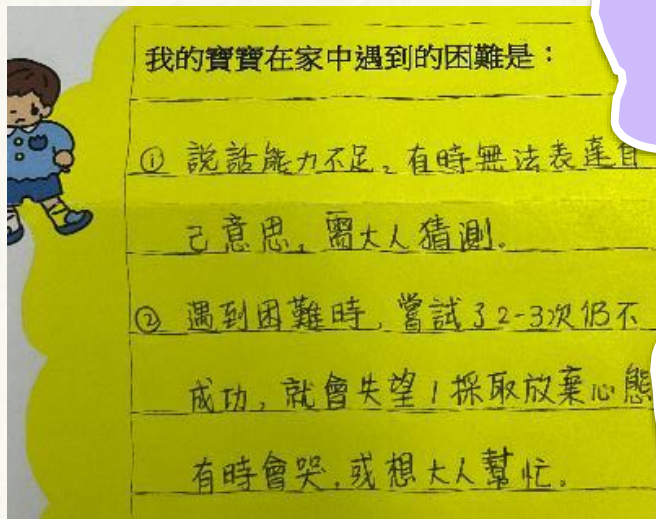 我的寶寶在家中遇到的困難是：
① 說話能力不足，有時無法表達自
己意思，需大人猜測。
② 遇到困難時，嘗試了2-3次仍不
成功，就會失望/採取放棄心態
有時會哭，或想大人幫忙。